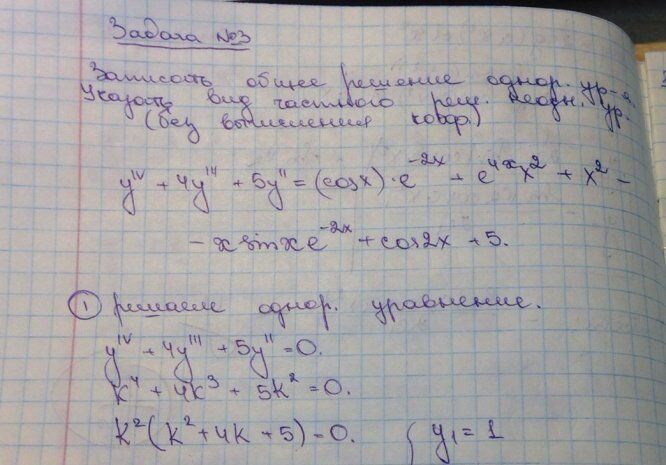 Задача №3
Записать общее решение однор. ур-я.
Указать вид частного реш. неодн. ур.
(без вычисления коэф.)
y^IV + 4y''' + 5y'' = (cosx)·e^-2x + e^4x x^2 + x^2 -
- x sinx e^-2x + cos2x + 5.
① решаем однор. уравнение.
y^IV + 4y''' + 5y'' = 0.
k^4 + 4k^3 + 5k^2 = 0.
k^2(k^2 + 4k + 5) = 0. { y₁ = 1